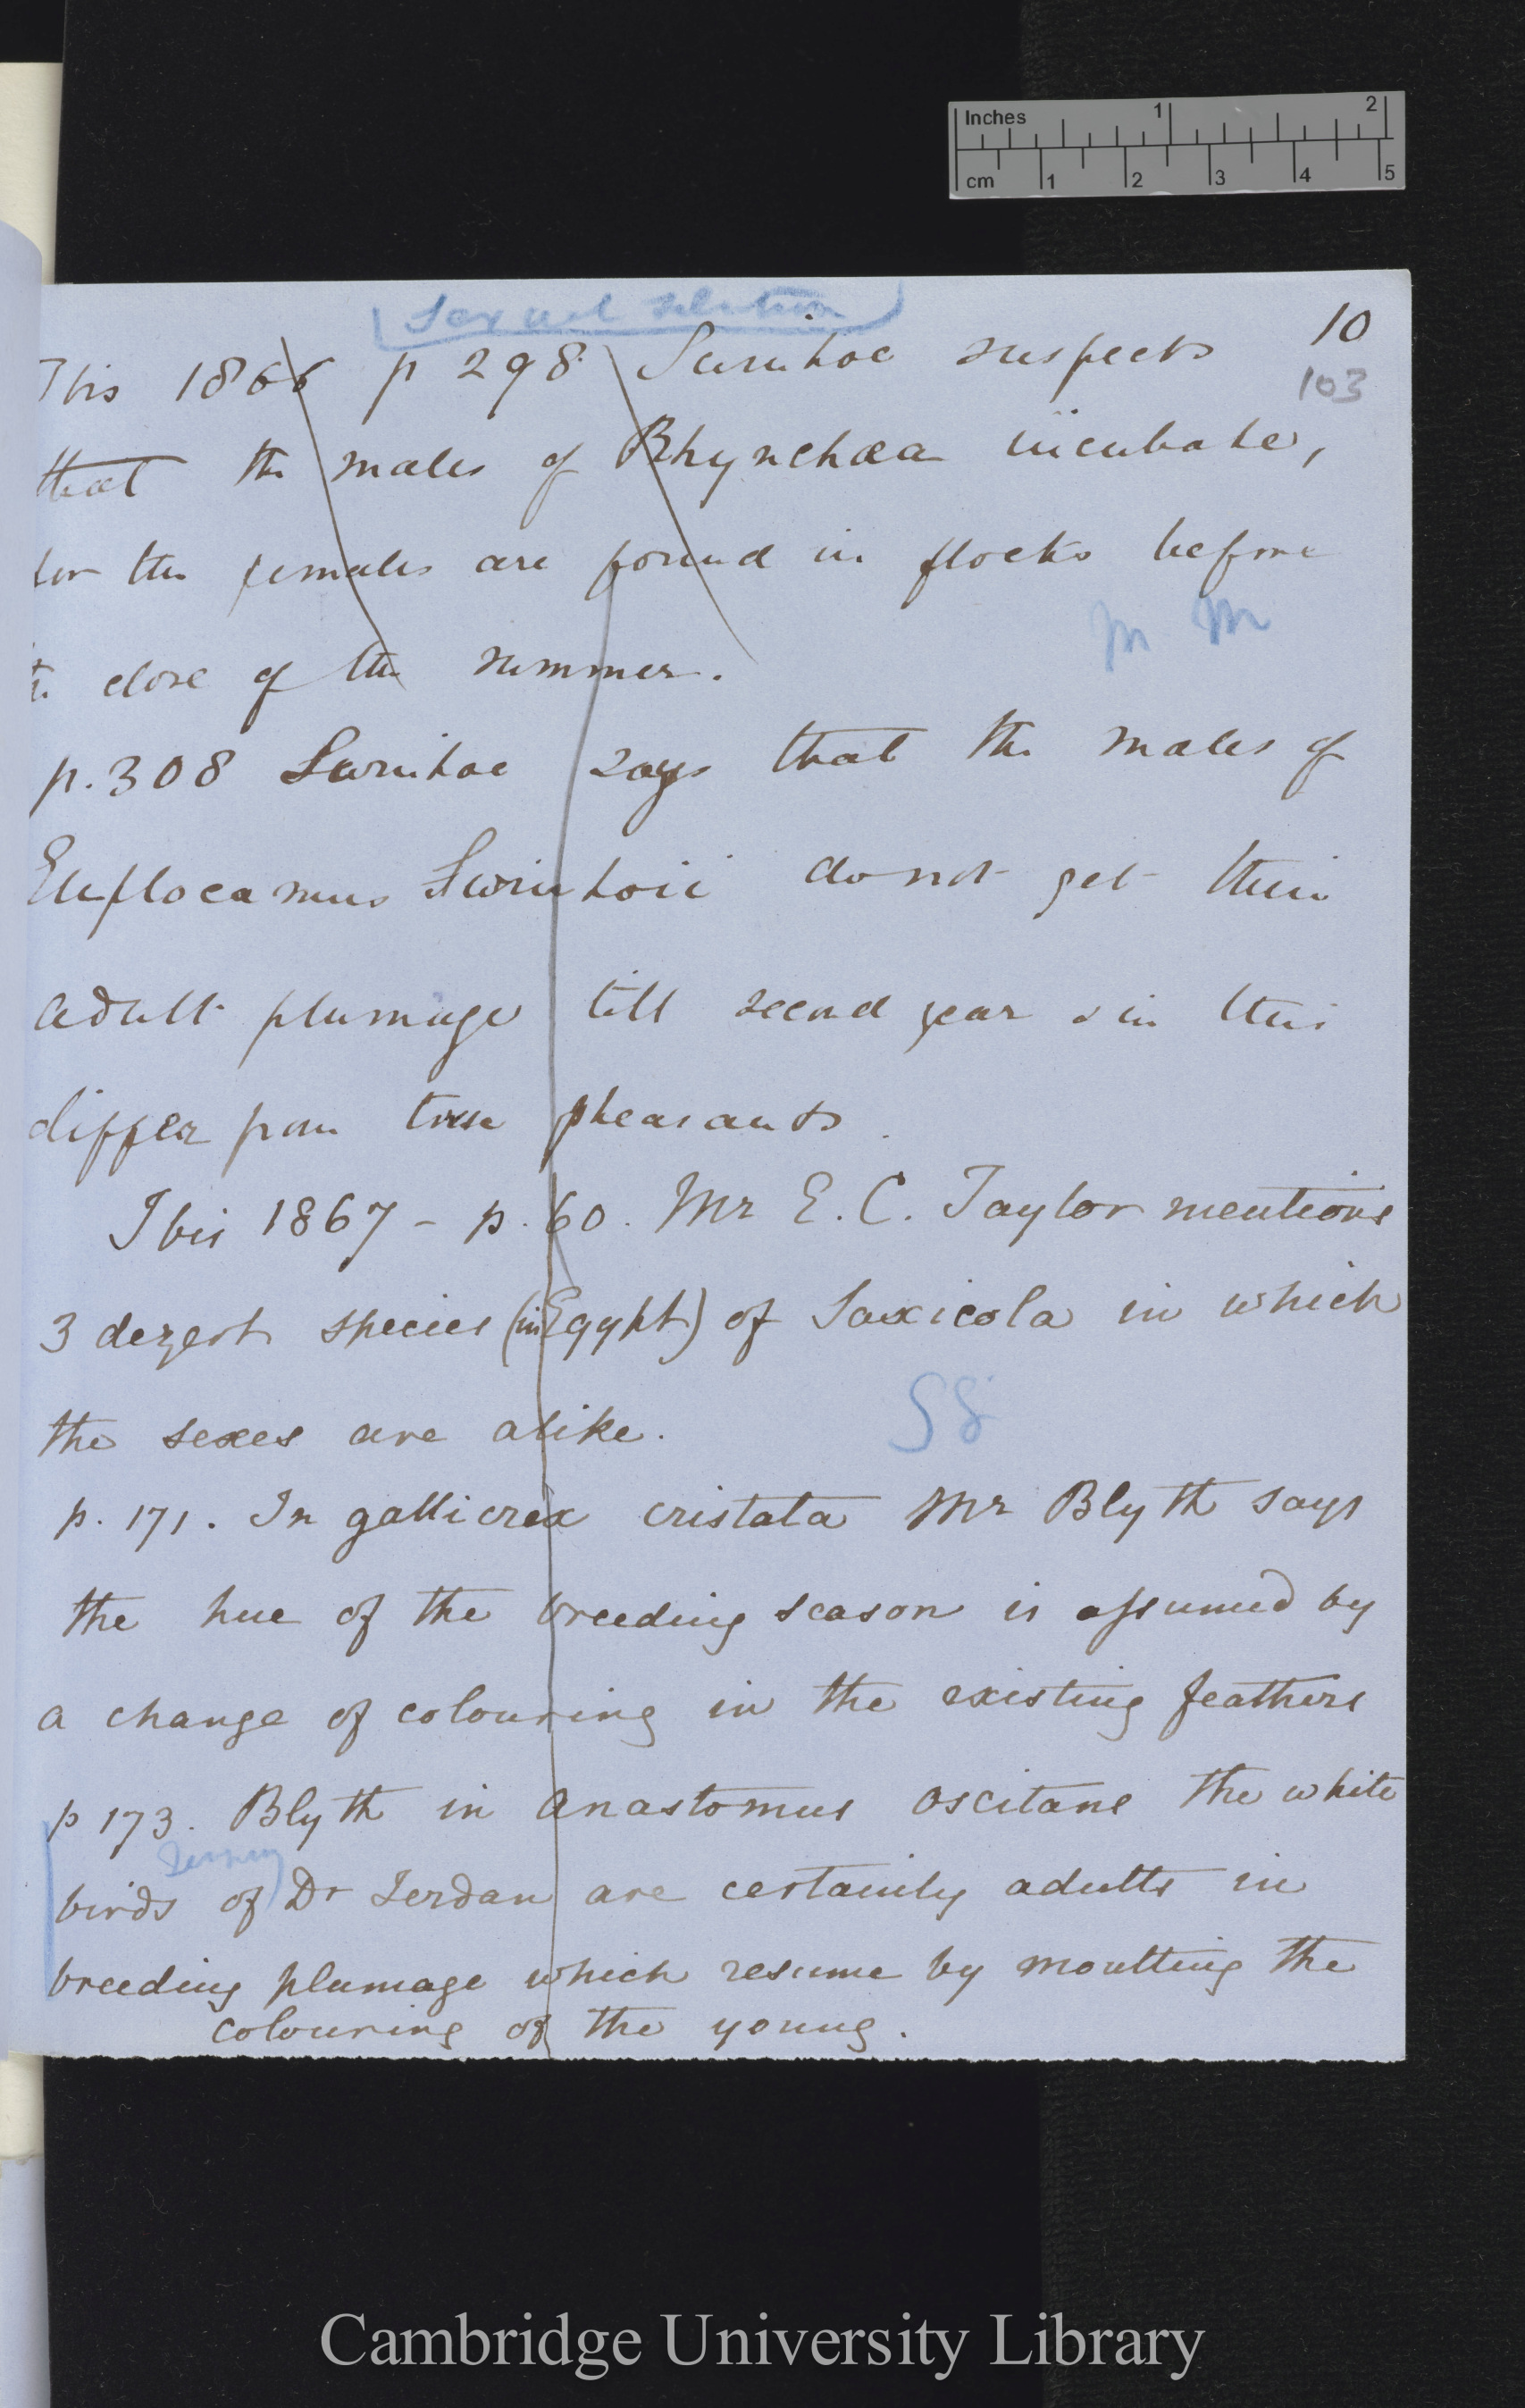 Inches 1 2
cm 1 2 3 4 5
Sexual Selection
10
Ibis 1866 p 298. Swinhoe suspects
103
that the males of Rhynchæa incubate,
for the females are found in flocks before
the close of the summer.
M M
p. 308 Swinhoe says that the males of
Euplocamus Swinhoii do not get their
adult plumage till second year & in this
differ from true pheasants.
Ibis 1867 - p. 60. Mr E. C. Taylor mentions
3 dezert species (in Egypt) of Saxicola in which
the sexes are alike.
p. 171. In gallicrex cristata Mr Blyth says
the hue of the breeding season is assumed by
a change of colouring in the existing feathers
p 173. Blyth in Anastomus oscitans the white
birds of Dr Jerdan are certainly adults in
breeding plumage which resume by moulting the
colouring of the young.
Cambridge University Library